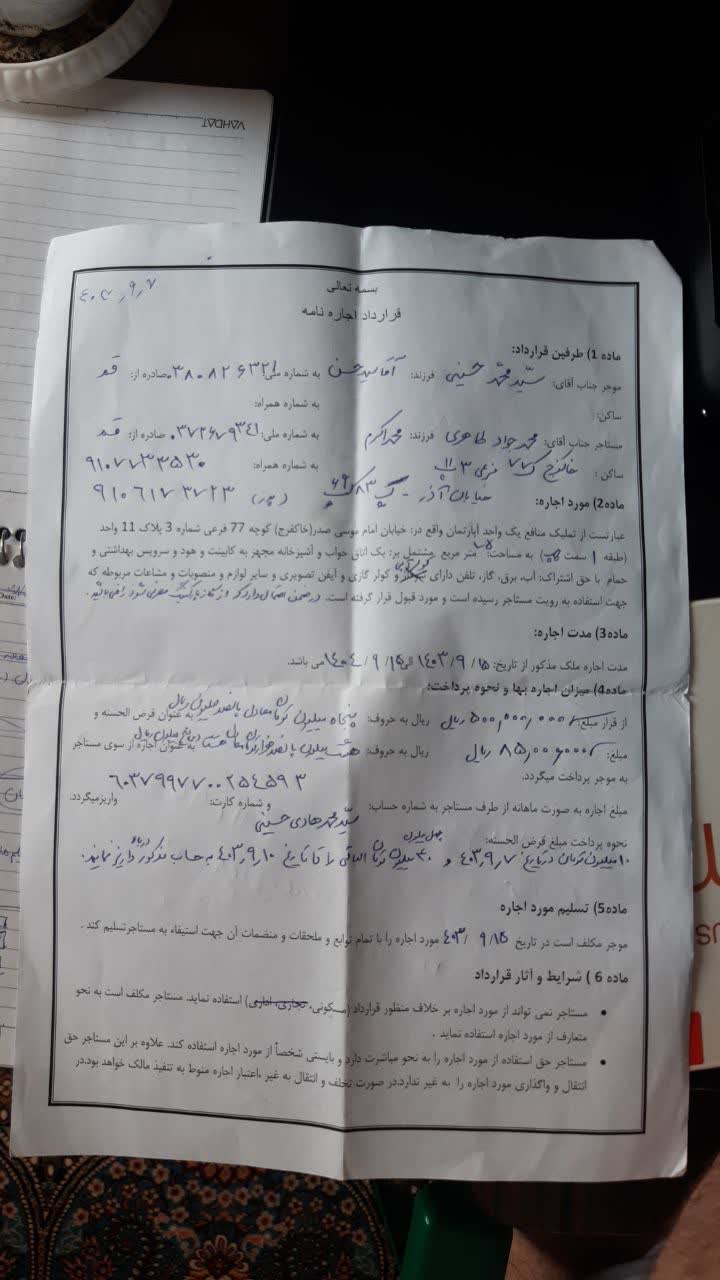 VAHDAT
۴۰۳٫۹٫۷
بسمه تعالی
قرارداد اجاره نامه
ماده 1) طرفین قرارداد:
موجر جناب آقای: سیّد محمّد حسینی فرزند: آقا سید حسن به شماره ملی: صادره از: قم
ساکن: به شماره همراه:
مستاجر جناب آقای: محمد جواد طاهری فرزند: محمد اکرم به شماره ملی: صادره از: قم
ساکن: خاکفرج ک ۷۷ فرعی ۳ پ ۱۱ به شماره همراه: ۹۱۰۷۷۳۳۵۳۰
ماده2) مورد اجاره: خیابان آذر - ۹۱۰۶۱۷۳۷۲۳ (پدر)
عبارتست از تملیک منافع یک واحد آپارتمان واقع در: خیابان امام موسی صدر(خاکفرج) کوچه 77 فرعی شماره 3 پلاک 11 واحد
(طبقه ۱ سمت ) به مساحت: متر مربع مشتمل بر: یک اتاق خواب و آشپزخانه مجهز به کابینت و هود و سرویس بهداشتی و
حمام با حق اشتراک: آب، برق، گاز، تلفن دارای و کولر گازی و آیفن تصویری و سایر لوازم و منصوبات و مشاعات مربوطه که
جهت استفاده به رویت مستاجر رسیده است و مورد قبول قرار گرفته است. در ضمن
ماده3) مدت اجاره:
مدت اجاره ملک مذکور از تاریخ: ۱۴۰۳/۹/۱۵ الی ۱۴۰۴/۹/۱۵ می باشد.
ماده4) میزان اجاره بها و نحوه پرداخت:
از قرار مبلغ: ۵۰۰,۰۰۰,۰۰۰ ریال ریال به حروف: پنجاه میلیون تومان معادل پانصد میلیون ریال به عنوان قرض الحسنه و
مبلغ: ۸۵,۰۰۰,۰۰۰ ریال ریال به حروف: هشت میلیون پانصد هزار تومان به عنوان اجاره از سوی مستاجر
به موجر پرداخت میگردد.
۶۰۳۷۹۹۷۷۰۰۲۵۴۵۹۳
مبلغ اجاره به صورت ماهانه از طرف مستاجر به شماره حساب: و شماره کارت: واریز میگردد.
سیّد محمد هادی حسینی
نحوه پرداخت مبلغ قرض الحسنه:
۱۰ میلیون تومان در تاریخ ۴۰۳٫۹٫۷ و چهل میلیون ۴۰ میلیون تومان الباقی را تا تاریخ ۴۰۳٫۹٫۱۰ به حساب مذکور واریز نمایند.
ماده5) تسلیم مورد اجاره
موجر مکلف است در تاریخ ۴۰۳/۹/۱۵ مورد اجاره را با تمام توابع و ملحقات و منضمات آن جهت استیفاء به مستاجرتسلیم کند .
ماده 6 ) شرایط و آثار قرارداد
• مستاجر نمی تواند از مورد اجاره بر خلاف منظور قرارداد (مسکونی، تجاری، اداری) استفاده نماید. مستاجر مکلف است به نحو
متعارف از مورد اجاره استفاده نماید .
• مستاجر حق استفاده از مورد اجاره را به نحو مباشرت دارد و بایستی شخصاً از مورد اجاره استفاده کند. علاوه بر این مستاجر حق
انتقال و واگذاری مورد اجاره را به غیر ندارد.در صورت تخلف و انتقال به غیر ،اعتبار اجاره منوط به تنفیذ مالک خواهد بود.در